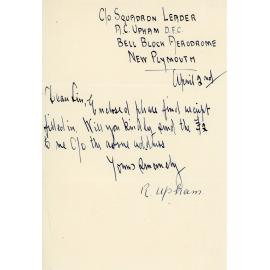 C/o Squadron Leader
A.C. Upham D.F.C.
Bell Block Aerodrome
New Plymouth
April 2nd
Dear Sir, Enclosed please find receipt
filled in. Will you kindly send the £2
to me C/o the above address
Yours sincerely
R. Upham.